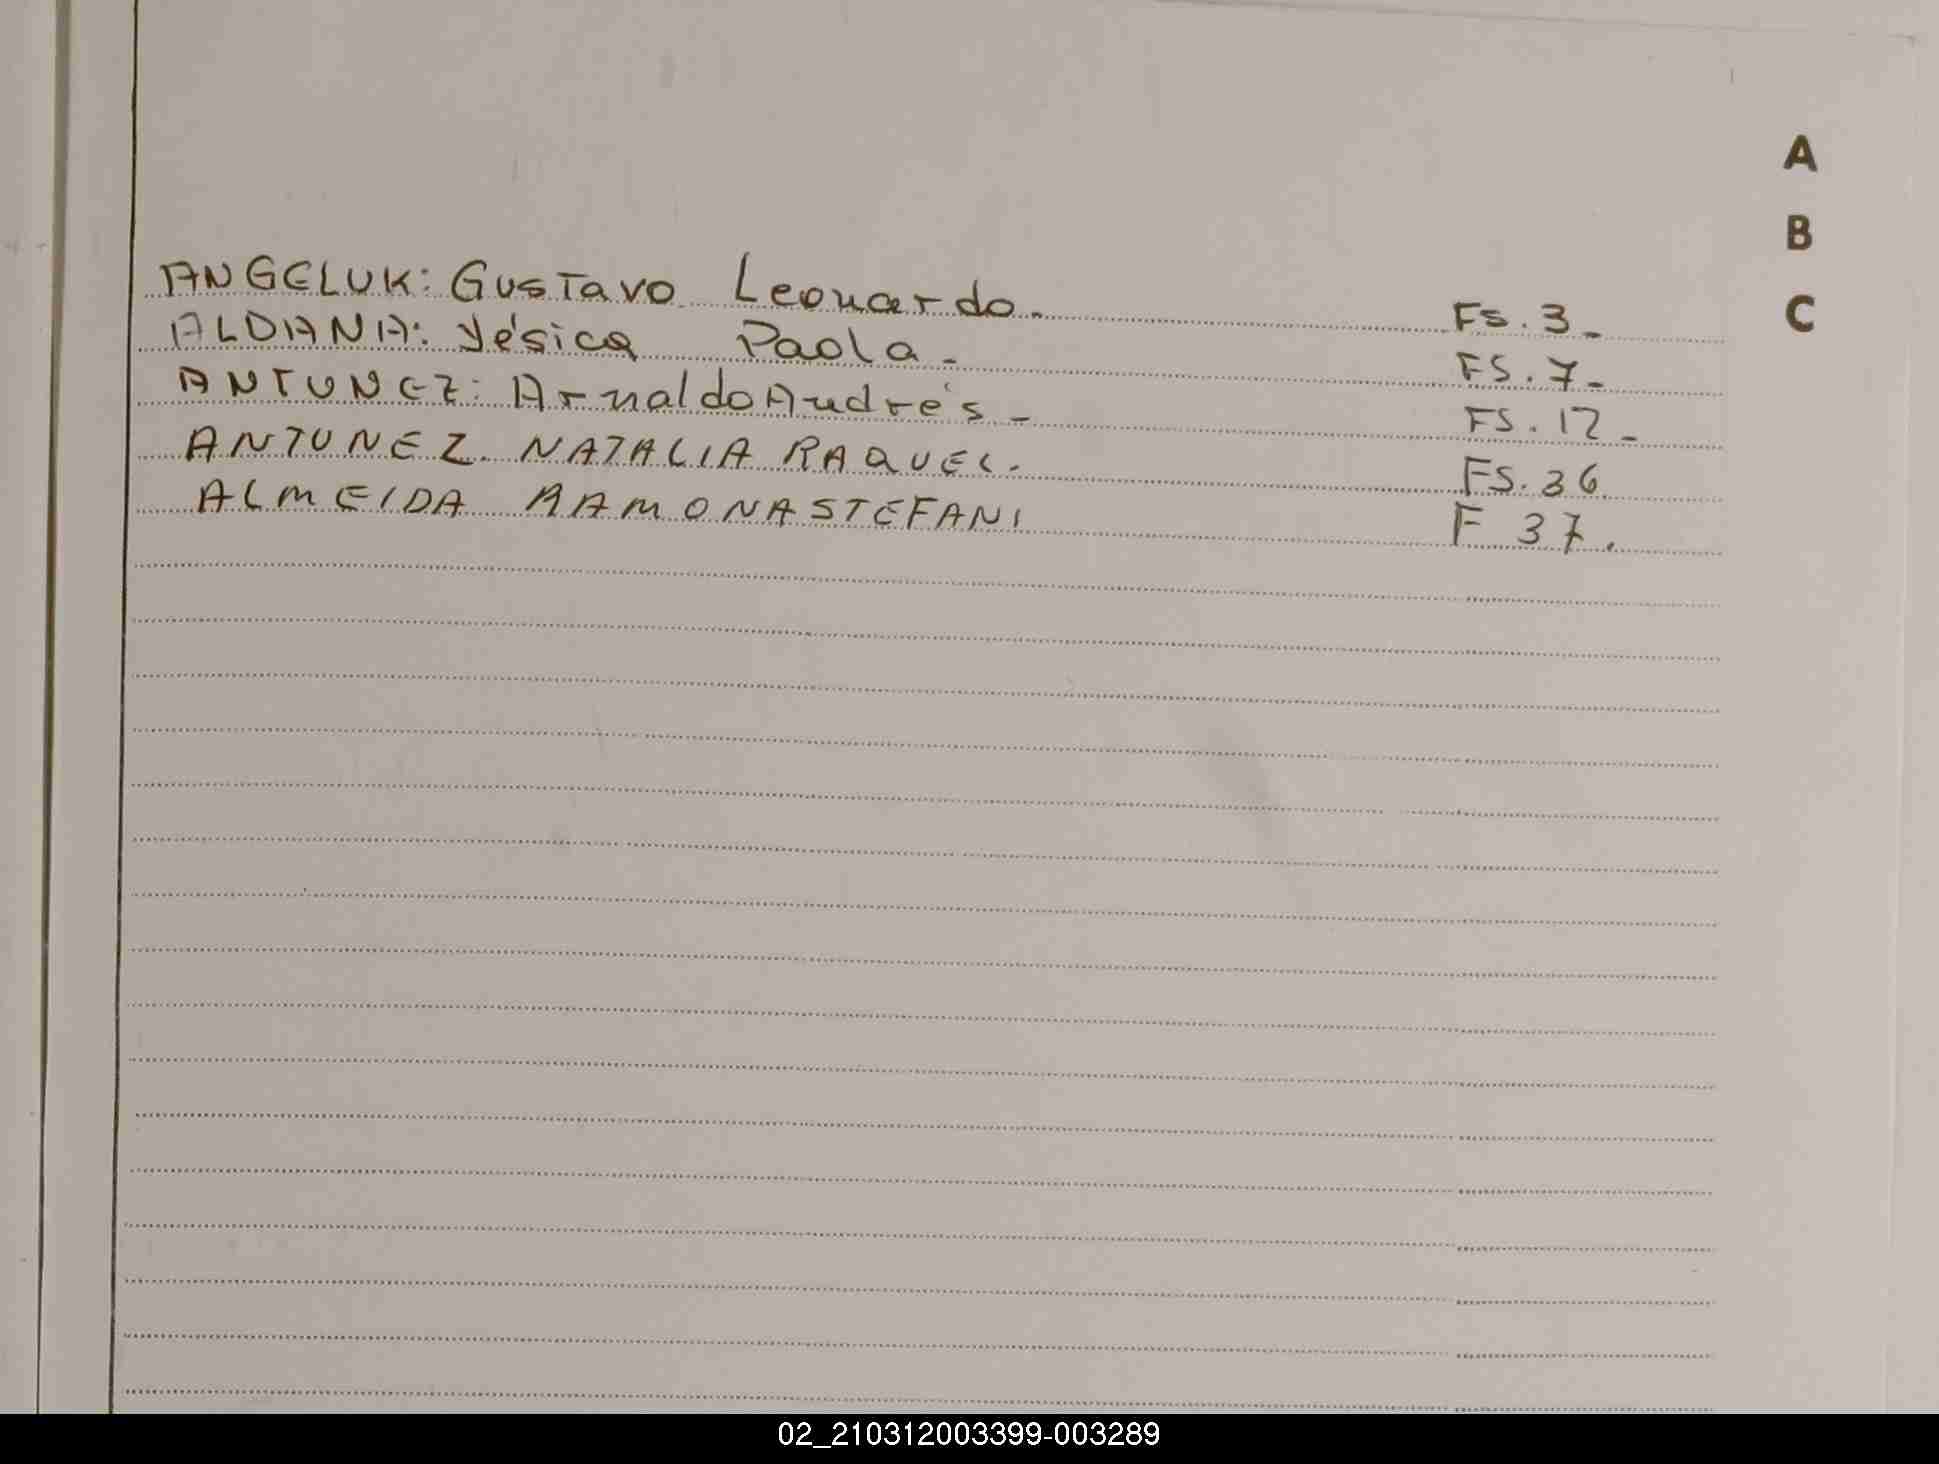 A
B
C
ANGELUK: Gustavo Leonardo. Fs. 3_
ALDANA: Yésica Paola_ FS. 7_
ANTUNEZ: Arnaldo Andrés_ FS. 12_
ANTUNEZ. NATALIA RAQUEL. FS. 36.
ALMEIDA RAMONA STEFANI F 37.
02_210312003399-003289